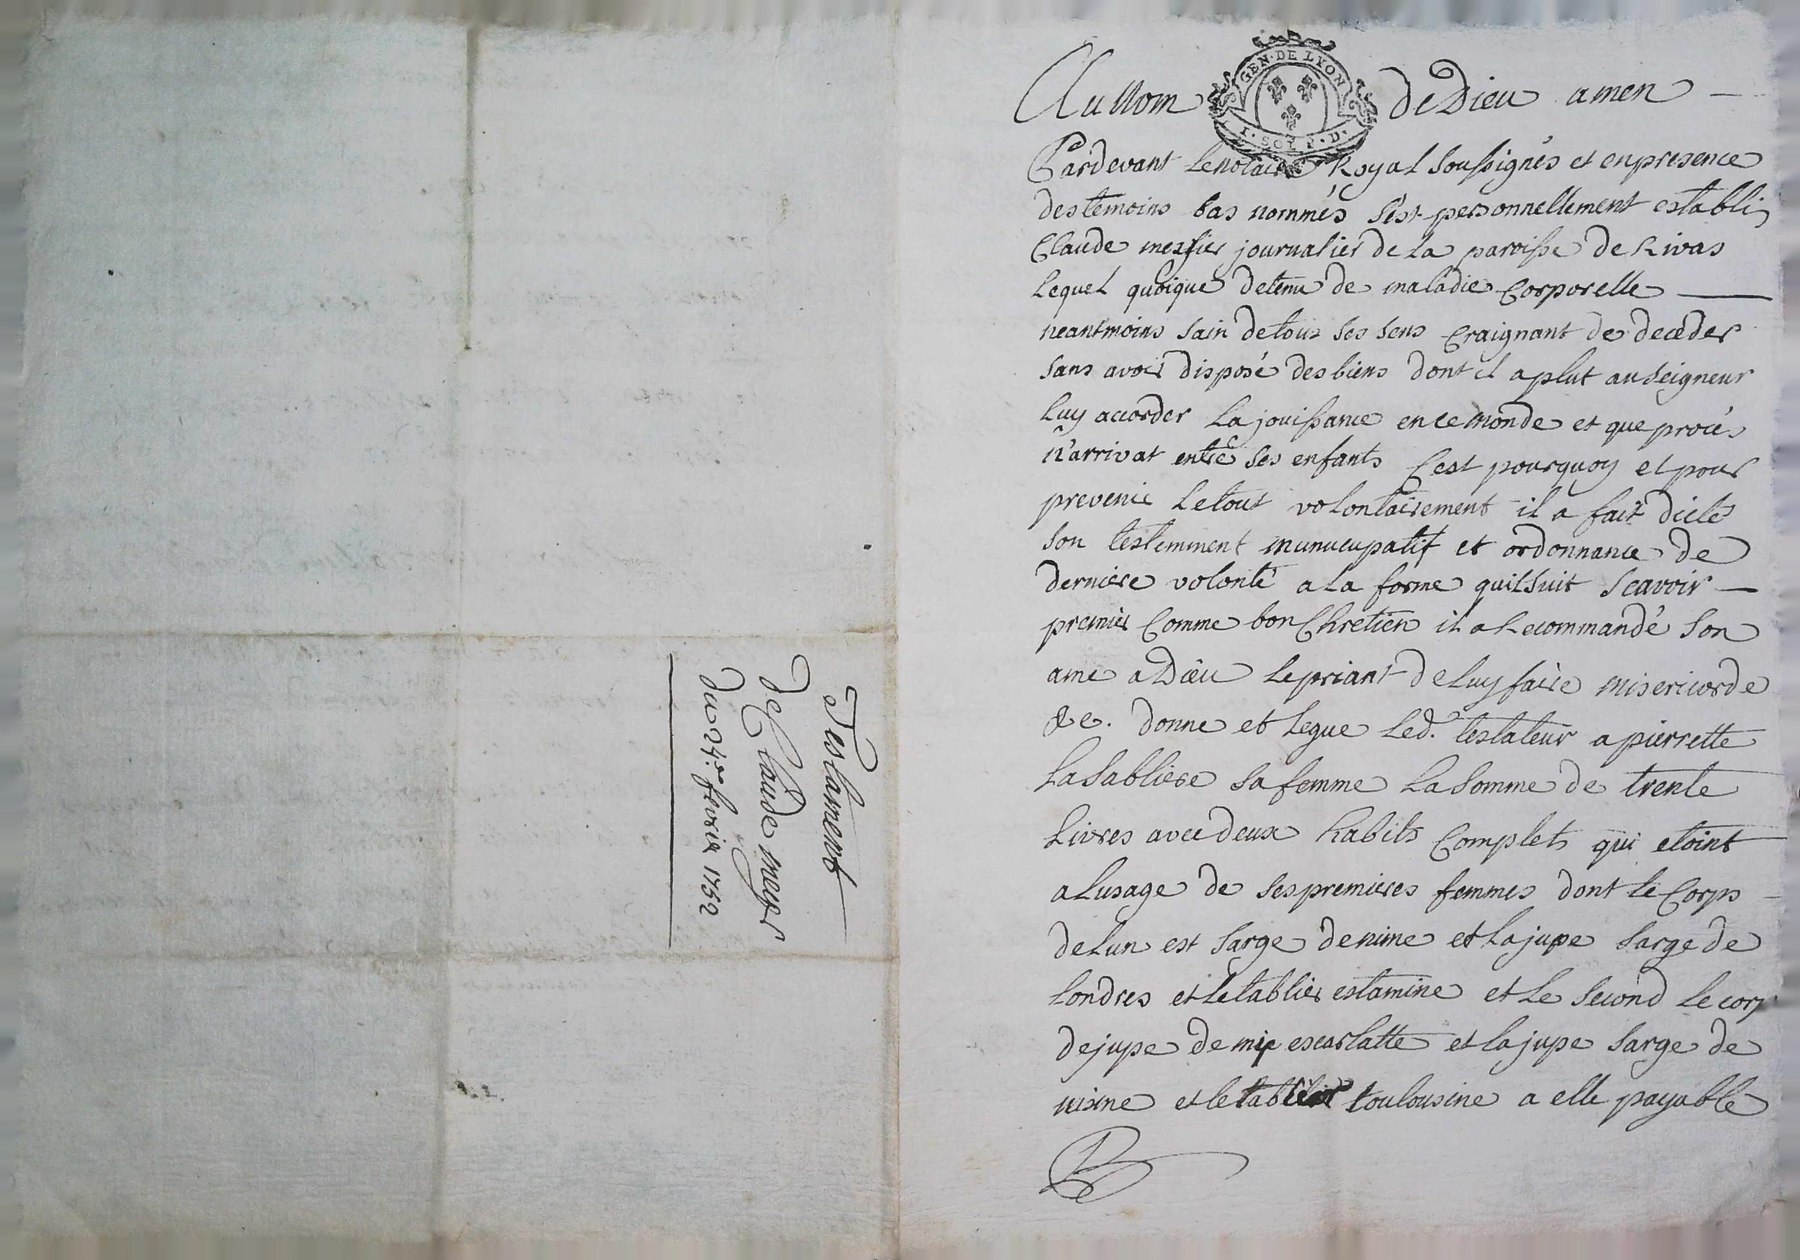 Testament
de Claude meyf
du 24e. fevrier 1752
GEN. DE LYON
1. SOL 8. D.
Au Nom de Dieu amen
Pardevant le notaire Royal soussignés et en presence
des temoins bas nommés s'est personnellement establi,
Claude journalier de la paroisse de Rivas
lequel quoique detenu de maladie Corporelle
neantmoins sain de tous ses sens Craignant de deceder
sans avoir disposé des biens dont il a plut au seigneur
luy accorder la jouissance en ce monde et que procés
n'arrivat entre ses enfants C'est pourquoy et pour
prevenir le tout volontairement il a fait dicté
son testemment nunucupatif et ordonnance de
derniere volonté a la forme quil suit Scavoir
premier Comme bon Chretien il a Recommandé son
ame a Dieu le priant de luy faire misericorde
&c. donne et legue led. testateur a pierrette
Lasabliere sa femme la somme de trente
livres avec deux habits Complets qui etoint
a lusage de ses premieres femmes dont le Corps
de lun est sarge de nime et la jupe sarge de
londres et le tablier estamine et le second le corp
de jupe de mie escarlatte et la jupe sarge de
nixne et le tablier toulousine a elle payable